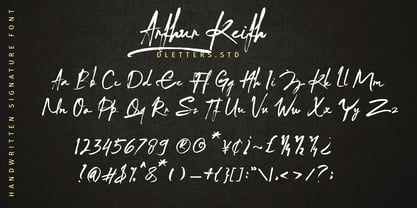 Arthur Keith
DLETTERS.STD
Aa Bb Cc Dd Ee Ff Gg Hh Ii Jj Kk Ll Mm
Nn Oo Pp Qq Rr Ss Tt Uu Vv Ww Xx Yy Zz
123456789
!@#$%^&*()_-+{}[]:"\|,<>/?;
HANDWRITTEN SIGNATURE FONT